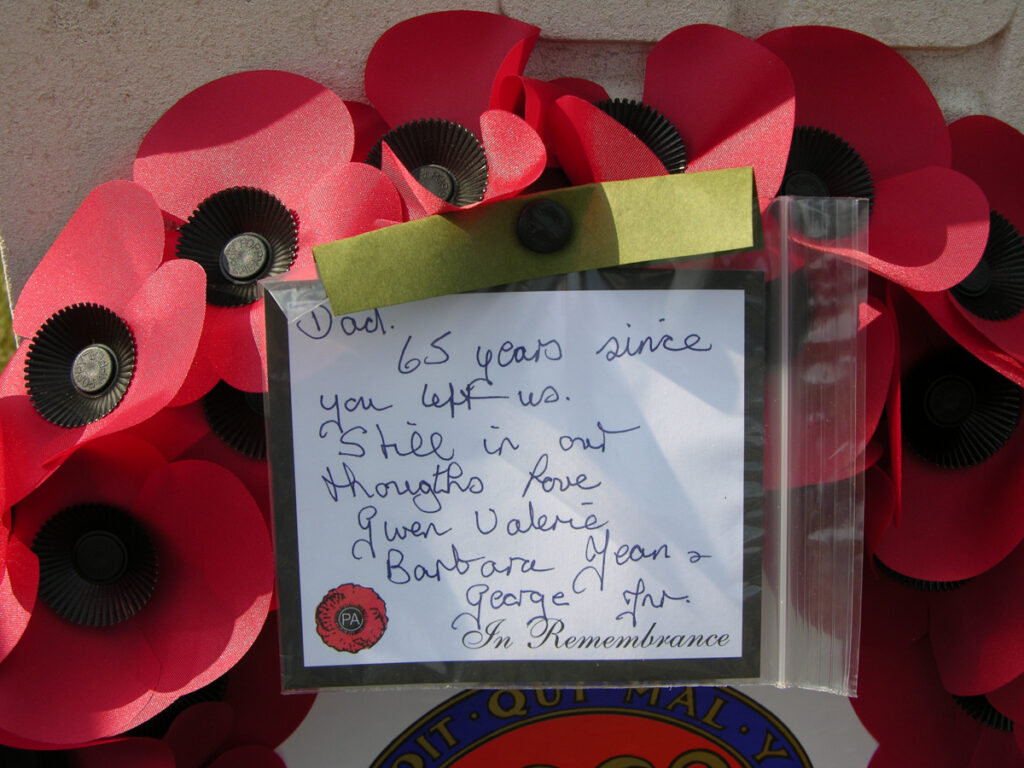 Dad.
65 years since
you left us.
Still in our
thougths love
Gwen Valerie
Barbara Jean &
George Jnr.
PA
In Remembrance
OIT · QUI · MAL · Y